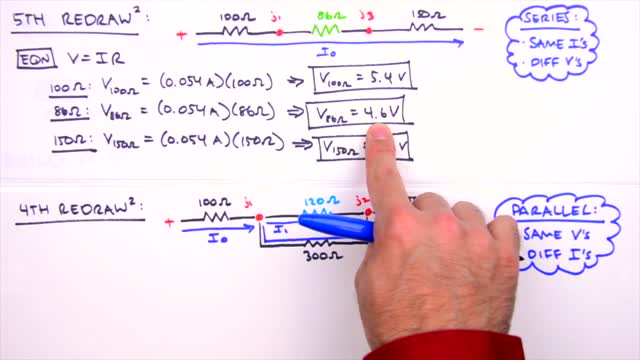 5TH REDRAW²:
100Ω j₁ 86Ω j₃ 150Ω
+ −
I₀
SERIES:
· SAME I's
· DIFF V's
EQN V = IR
100Ω: V100Ω = (0.054A)(100Ω) ⇒ V100Ω = 5.4 V
86Ω: V86Ω = (0.054A)(86Ω) ⇒ V86Ω = 4.6V
150Ω: V150Ω = (0.054A)(150Ω) ⇒ V150Ω = V
4TH REDRAW²:
100Ω j₁ 120Ω j₂
+
I₀ I₁
300Ω
PARALLEL:
SAME V's
DIFF I's